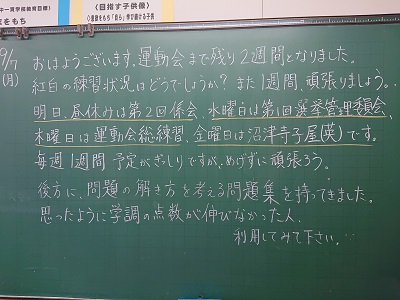 中一貫学校教育目標〉
〈目指す子供像〉
心意気をもち「自ら」学び続ける子供
をもち
9/7
(月)
おはようございます。運動会まで残り2週間となりました。
紅白の練習状況はどうでしょうか?また1週間、頑張りましょう。
明日、昼休みは第2回係会、水曜日は第1回選挙管理委員会、
木曜日は運動会総練習、金曜日は沼津寺子屋(英)です。
毎週1週間予定がぎっしりですが、めげずに頑張ろう。
後方に、問題の解き方を考える問題集を持ってきました。
思ったように学調の点数が伸びなかった人、
利用してみて下さい。